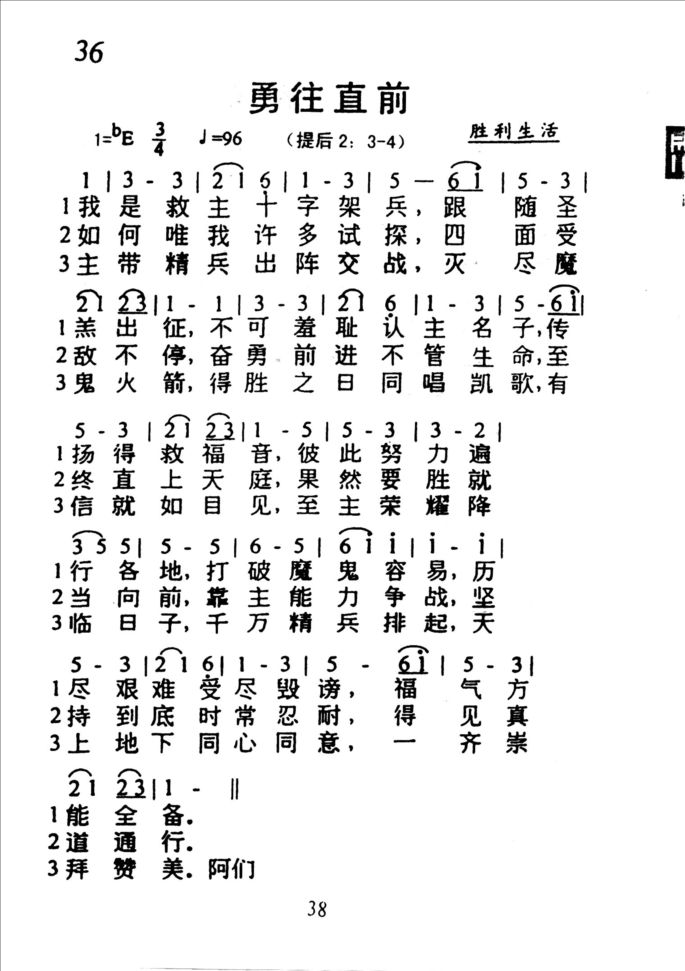 36
勇往直前
1=ᵇE 3/4 ♩=96 （提后2：3-4） 胜利生活
1 | 3 - 3 | 2 1 6̣ | 1 - 3 | 5 — 6 i̇ | 5 - 3 |
1我 是 救 主 十 字 架 兵，跟 随 圣
2如 何 唯 我 许 多 试 探，四 面 受
3主 带 精 兵 出 阵 交 战，灭 尽 魔
2 1 2 3 | 1 - 1 | 3 - 3 | 2 1 6̣ | 1 - 3 | 5 - 6 i̇ |
1羔 出 征，不 可 羞 耻 认 主 名 子，传
2敌 不 停，奋 勇 前 进 不 管 生 命，至
3鬼 火 箭，得 胜 之 日 同 唱 凯 歌，有
5 - 3 | 2 1 2 3 | 1 - 5 | 5 - 3 | 3 - 2 |
1扬 得 救 福 音，彼 此 努 力 遍
2终 直 上 天 庭，果 然 要 胜 就
3信 就 如 目 见，至 主 荣 耀 降
3 5 5 | 5 - 5 | 6 - 5 | 6 i̇ i̇ | i̇ - i̇ |
1行 各 地，打 破 魔 鬼 容 易，历
2当 向 前，靠 主 能 力 争 战，坚
3临 日 子，千 万 精 兵 排 起，天
5 - 3 | 2 1 6̣ | 1 - 3 | 5 - 6 i̇ | 5 - 3 |
1尽 艰 难 受 尽 毁 谤，福 气 方
2持 到 底 时 常 忍 耐，得 见 真
3上 地 下 同 心 同 意，一 齐 崇
2 1 2 3 | 1 - ‖
1能 全 备．
2道 通 行．
3拜 赞 美．阿们
38